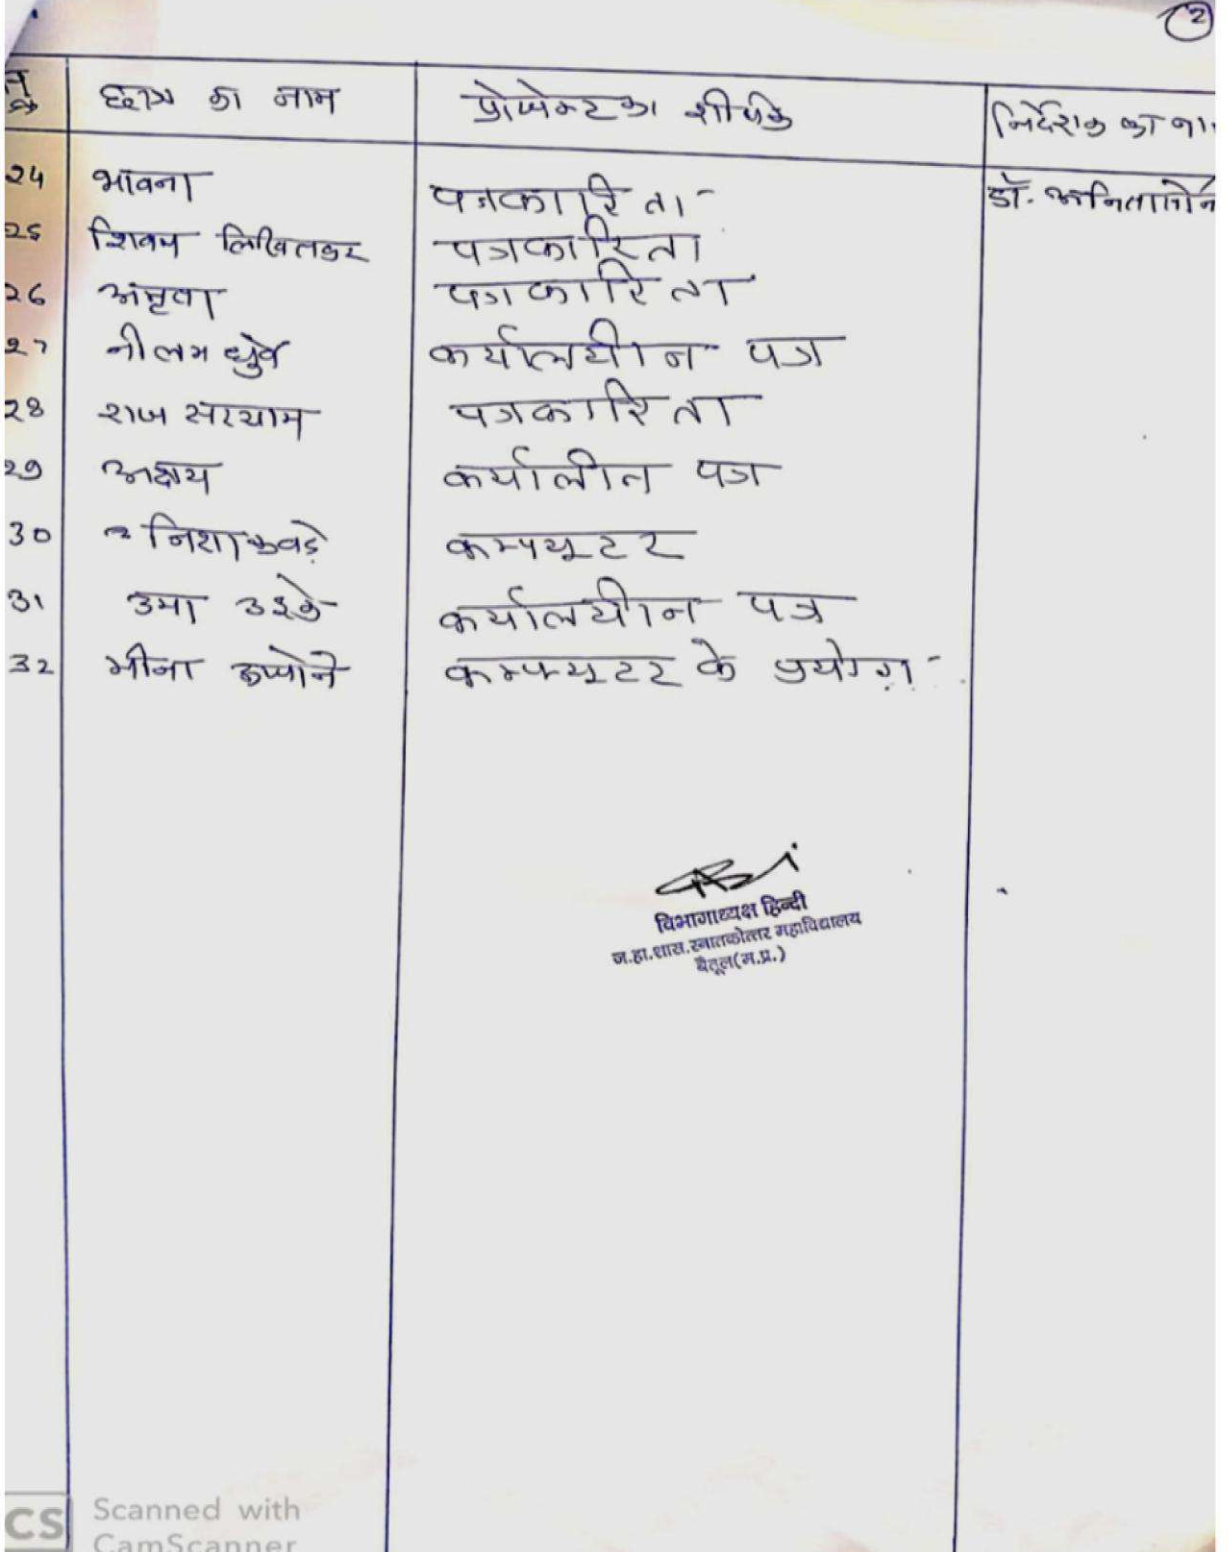 2
छात्र का नाम प्रोजेक्ट का शीर्षक निर्देशक का
24 भावना पत्रकारिता डॉ. अनिता
25 शिवम पत्रकारिता
26 अमृता पत्रकारिता
27 नीलम धुर्वे कर्यालयीन पत्र
28 राज सरयाम पत्रकारिता
29 अक्षय कर्यालीन पत्र
30 निशा कवड़े कम्पयूटर
31 उमा उइके कर्यालयीन पत्र
32 मीना कम्पयूटर के प्रयोग
विभागाध्यक्ष हिन्दी
ज.हा.शास.स्नातकोत्तर महाविद्यालय
बैतूल(म.प्र.)
CS Scanned with
CamScanner